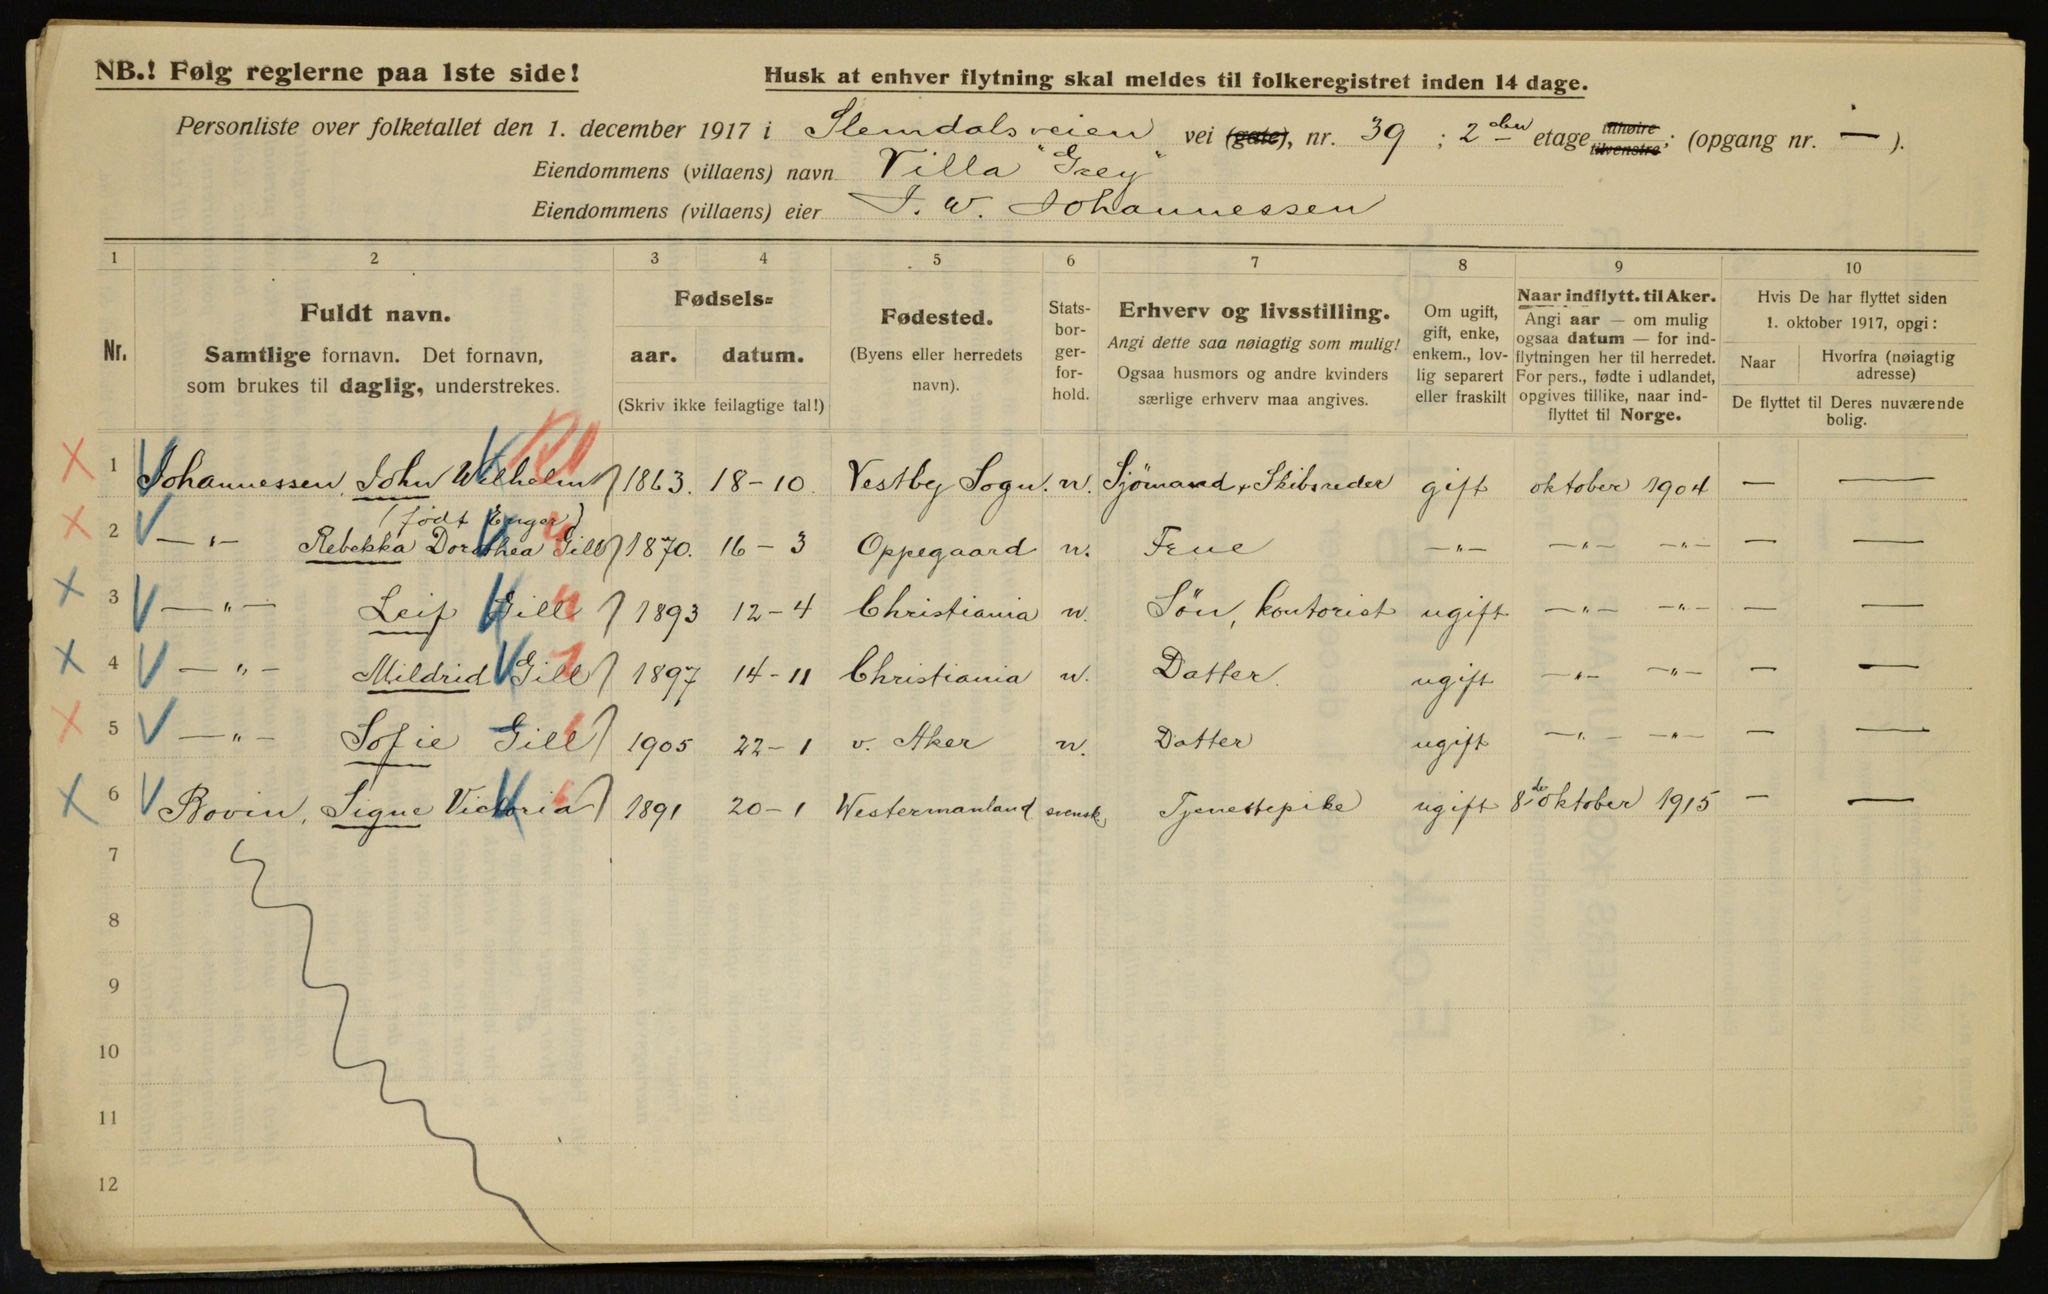 NB.! Følg reglerne paa 1ste side!
Husk at enhver flytning skal meldes til folkeregistret inden 14 dage.
Personliste over folketallet den 1. december 1917 i Slemdalsveien vei (gate), nr. 39 ; 2 den etage tilhøire tilvenstre; (opgang nr. — ).
Eiendommens (villaens) navn Villa "Grey"
Eiendommens (villaens) eier J. W. Johannessen
1 2 3 4 5 6 7 8 9 10
Nr.
Fuldt navn.
Samtlige fornavn. Det fornavn,
som brukes til daglig, understrekes.
Fødsels=
aar. datum.
(Skriv ikke feilagtige tal!)
Fødested.
(Byens eller herredets
navn).
Stats-
bor-
ger-
for-
hold.
Erhverv og livsstilling.
Angi dette saa nøiagtig som mulig!
Ogsaa husmors og andre kvinders
særlige erhverv maa angives.
Om ugift,
gift, enke,
enkem., lov-
lig separert
eller fraskilt
Naar indflytt. til Aker.
Angi aar — om mulig
ogsaa datum — for ind-
flytningen her til herredet.
For pers., fødte i udlandet,
opgives tillike, naar ind-
flyttet til Norge.
Hvis De har flyttet siden
1. oktober 1917, opgi:
Naar
Hvorfra (nøiagtig
adresse)
De flyttet til Deres nuværende
bolig.
1 Johannessen, John Wilhelm 1863. 18-10. Vestby Sogn. n. Sjömand + Skibsreder gift oktober 1904 — —
(født Enger)
2 —"— Rebekka Dorothea Gill 1870. 16-3 Oppegaard n. Frue —"— —"— —"— — —
3 —"— Leif Gill 1893 12-4 Christiania n. Sön, kontorist ugift —"— —"— — —
4 —"— Mildrid Gill 1897 14-11 Christiania n. Datter. ugift —"— —"— — —
5 —"— Sofie Gill 1905 22-1 v. Aker n. Datter ugift —"— —"— — —
6 Bovin, Signe Victoria 1891 20-1 Westermanland svensk. Tjenestepike ugift 8de oktober 1915 — —
7
8
9
10
11
12